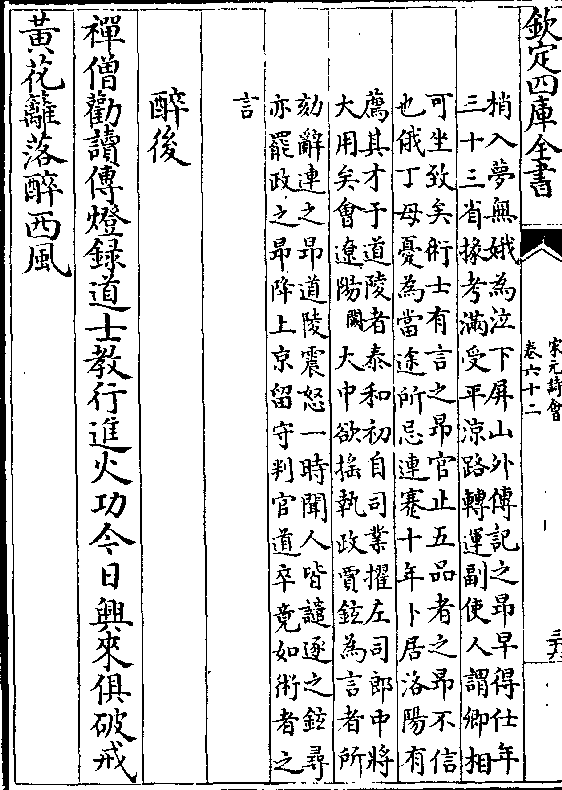 欽定四庫全書
宋元詩會
卷六十二
梢入夢無娥為泣下屏山外傳記之昂早得仕年
三十三省掾考滿受平涼路轉運副使人謂卿相
可坐致矣術士有言之昂官止五品者之昂不信
也俄丁母憂為當途所忌連蹇十年卜居洛陽有
薦其才于道陵者泰和初自司業擢左司郎中將
大用矣會遼陽闕大中欲搖執政賈鉉為言者所
劾辭連之昂道陵震怒一時聞人皆譴逐之鉉尋
亦罷政之昂降上京留守判官道卒竟如術者之
言
醉後
禪僧勸讀傳燈録道士教行進火功今日興來俱破戒
黃花籬落醉西風